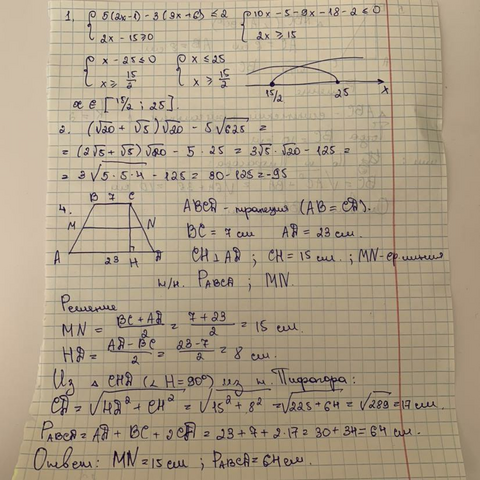 1. { 5(2x-1) - 3(3x+6) ≤ 2 { 10x - 5 - 9x - 18 - 2 ≤ 0
2x - 15 ≥ 0 2x ≥ 15
{ x - 25 ≤ 0 { x ≤ 25
x ≥ 15/2 x ≥ 15/2
15/2 25 x
x ∈ [15/2 ; 25].
2. (√20 + √5)√20 - 5√625 =
= (2√5 + √5)√20 - 5 · 25 = 3√5 · √20 - 125 =
= 3√5·5·4 - 125 = 30 - 125 = -95
4. B 7 C ABCD - трапеция (AB = CD).
M N BC = 7 см AD = 23 см.
A 23 H D CH ⊥ AD ; CH = 15 см. ; MN - ср. линия
Н/н. P ABCD ; MN.
Решение
MN = (BC + AD)/2 = (7 + 23)/2 = 15 см.
HD = (AD - BC)/2 = (23 - 7)/2 = 8 см.
Из △ CHD (∠ H = 90°) из т. Пифагора:
CD = √HD² + CH² = √15² + 8² = √225 + 64 = √289 = 17 см.
P ABCD = AD + BC + 2CD = 23 + 7 + 2·17 = 30 + 34 = 64 см.
Ответ: MN = 15 см ; P ABCD = 64 см.